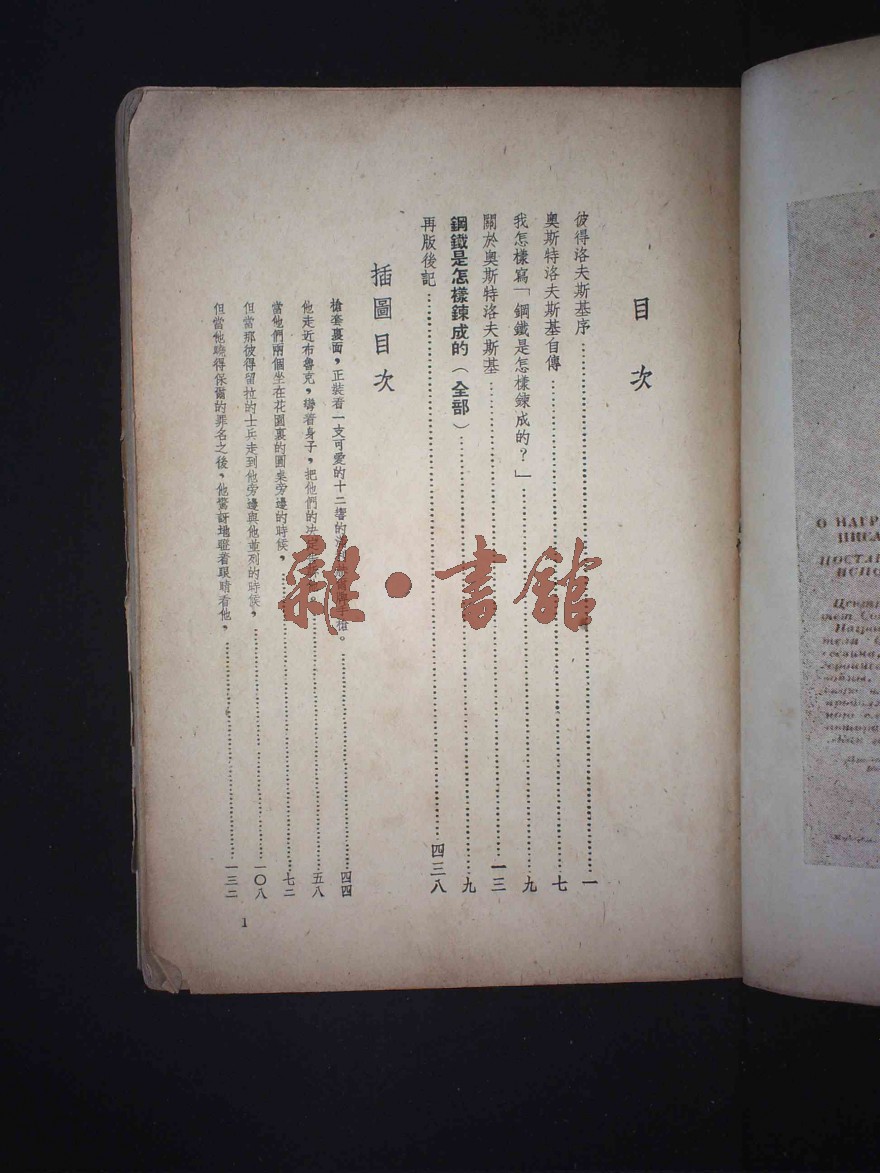 目次
彼得洛夫斯基序……一
奧斯特洛夫斯基自傳……七
我怎樣寫「鋼鐵是怎樣鍊成的?」……九
關於奧斯特洛夫斯基……一三
鋼鐵是怎樣鍊成的(全部)……九
再版後記……四三八
插圖目次
槍套裏面,正裝着一支可愛的十二響的 槍。……四四
他走近布魯克,彎着身子,把他們的决定 ……五八
當他們兩個坐在花園裏的圓桌旁邊的時候,……七二
但當那彼得留拉的士兵走到他旁邊與他並列的時候,……一〇八
但當他曉得保爾的罪名之後,他驚訝地瞪着眼睛看他,……一三二
1
雜·書館
О НАГР
ПИСА
ПОСТАН
ИСПО